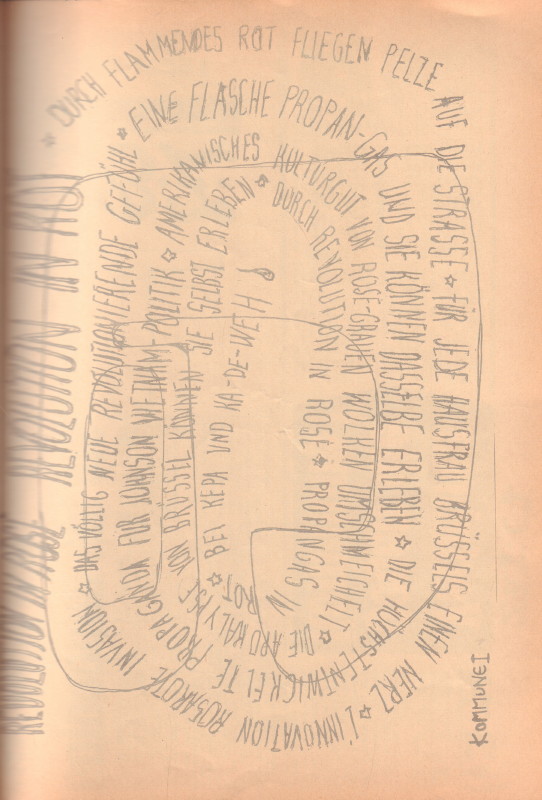 REVOLUTION IN ROSÉ
REVOLUTION IN ROT
☆ DURCH FLAMMENDES ROT FLIEGEN PELZE AUF DIE STRASSE ☆ FÜR JEDE HAUSFRAU BRÜSSELS EINEN NERZ ☆ L'INNOVATION ROSAROTE INVASION ☆ DAS VÖLLIG NEUE REVOLUTIONIERENDE GEFÜHL ☆ EINE FLASCHE PROPAN-GAS UND SIE KÖNNEN DASSELBE ERLEBEN ☆ DIE HÖCHSTENTWICKELTE PROPAGANDA FÜR JOHNSON VIETNAM-POLITIK ☆ AMERIKANISCHES KULTURGUT VON ROSÉ-GRAUEN WOLKEN UMSCHMEICHELT ☆ DIE APOKALYPSE VON BRÜSSEL KÖNNEN SIE SELBST ERLEBEN ☆ DURCH REVOLUTION IN ROSÉ ☆ PROPANGAS IN ROT ☆ BEI KEPA UND KA-DE-WEH !
KOMMUNE I